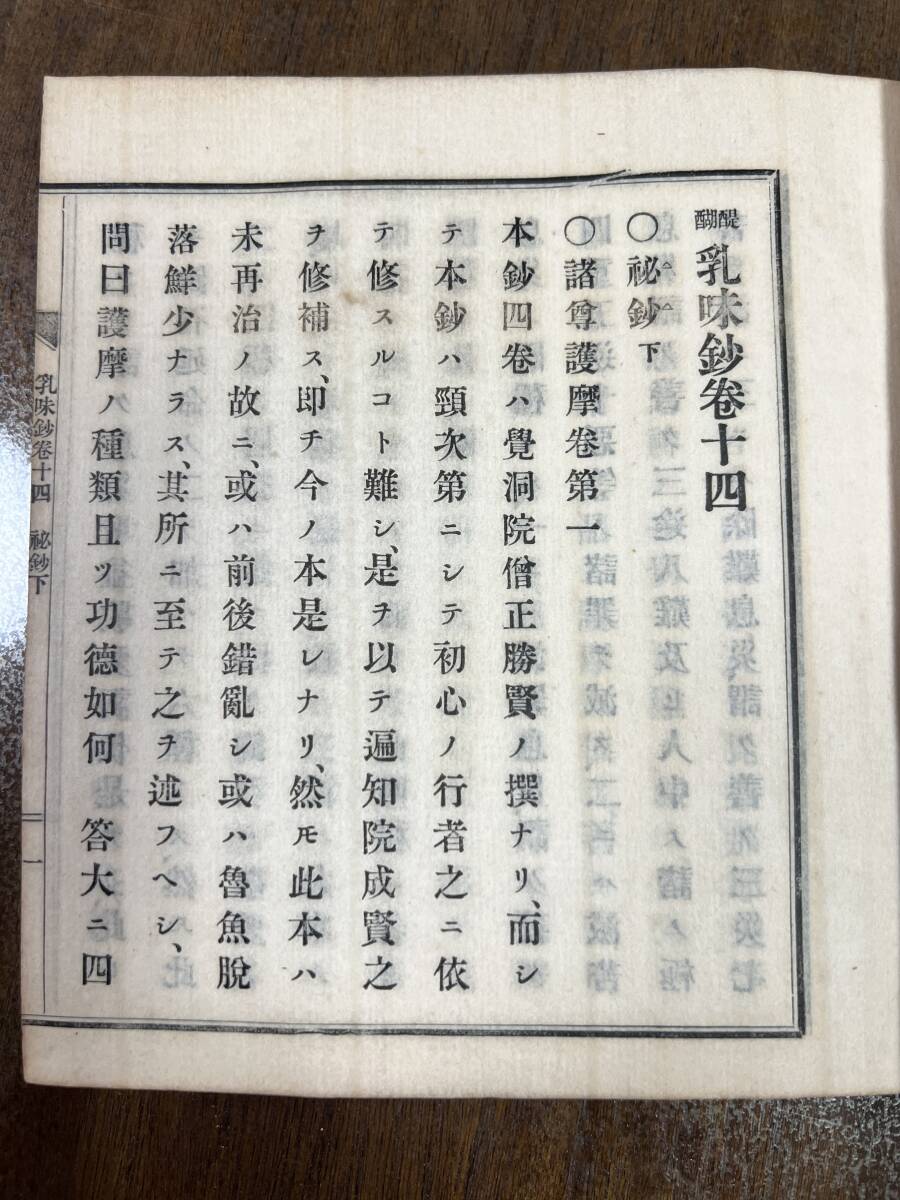 醍醐乳味鈔卷十四
〇祕鈔下
〇諸尊護摩卷第一
本鈔四卷ハ覺洞院僧正勝賢ノ撰ナリ、而シ
テ本鈔ハ頸次第ニシテ初心ノ行者之ニ依
テ修スルコト難シ、是ヲ以テ遍知院成賢之
ヲ修補ス、即チ今ノ本是レナリ、然モ此本ハ
未再治ノ故ニ、或ハ前後錯亂シ或ハ魯魚脫
落鮮少ナラス、其所ニ至テ之ヲ述フヘシ、
問曰護摩ノ種類且ツ功德如何 答大ニ四
乳味鈔卷十四 祕鈔下 一